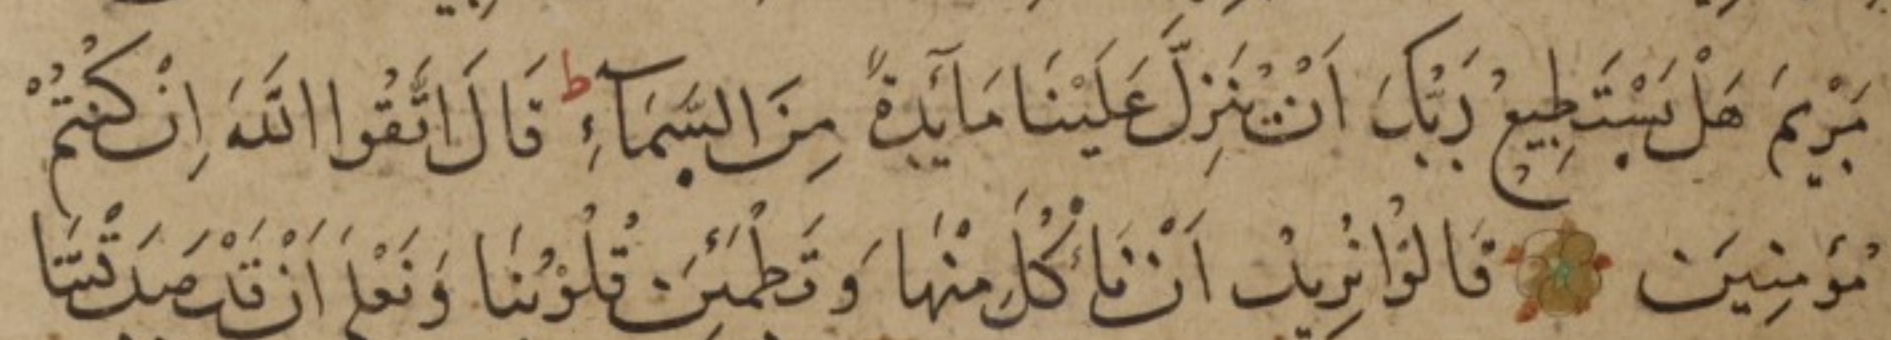 مَرْيَمَ هَلْ يَسْتَطِيعُ رَبُّكَ اَنْ يُنَزِّلَ عَلَيْنَا مَآئِدَةً مِنَ السَّمَآءِ ط قَالَ اتَّقُوا اللَّهَ اِنْ كُنْتُمْ
مُؤْمِنِينَ قَالُوْا نُرِيدُ اَنْ نَأْكُلَ مِنْهَا وَتَطْمَئِنَّ قُلُوْبُنَا وَنَعْلَمَ اَنْ قَدْ صَدَقْتَنَا